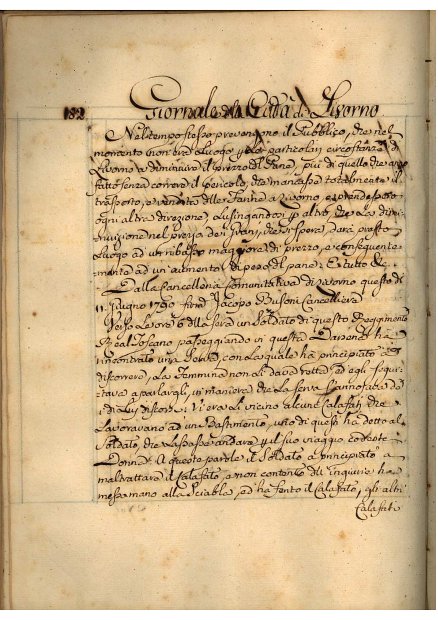 182
Giornale della Città di Livorno
Nel tempo stesso prevengono il Pubblico, che nel
momento non era Luogo p le particolari circostanze di
Livorno a diminuire il prezzo del Pane, più di quello che
fatto senza correre il pericolo, che mancasse totalmente il
trasporto, e vendita delle Farine a Livorno e prendessero
ogni altra direzione, Lusingandosi p altro, che La dimi-
nuzione nel prezzo de Grani, che si spera, darà presto
Luogo ad un ribasso maggiore di prezzo, e conseguente-
mente ad un aumento di peso del pane. E tutto &c
Dalla Cancelleria Comunitativa di Livorno questo dì
11. Giugno 1790 Jacopo Cancelliere
Verso Le ore 6 della sera un Soldato di questo Reggimento
Real Toscano passeggiando vi questa Darsena ha
incontrato una con la quale ha principiato a
discorrere, La Femmina non Li dava retta ed egli seguì-
tava a parlargli, in maniera che La serva
di Lui discorsi. Vi era lì vicino alcuni Calafati che
Lavoravano ad un Bastimento, uno di questi ha detto al
Soldato, che Lasciasse andare p il suo viaggio codeste
Donne. A queste parole il Soldato a principiato a
maltrattare il Calafato, e non contento dell ingiurie ha
messo mano alla Sciabla, ed ha ferito il Calafato, gli altri
Calafati